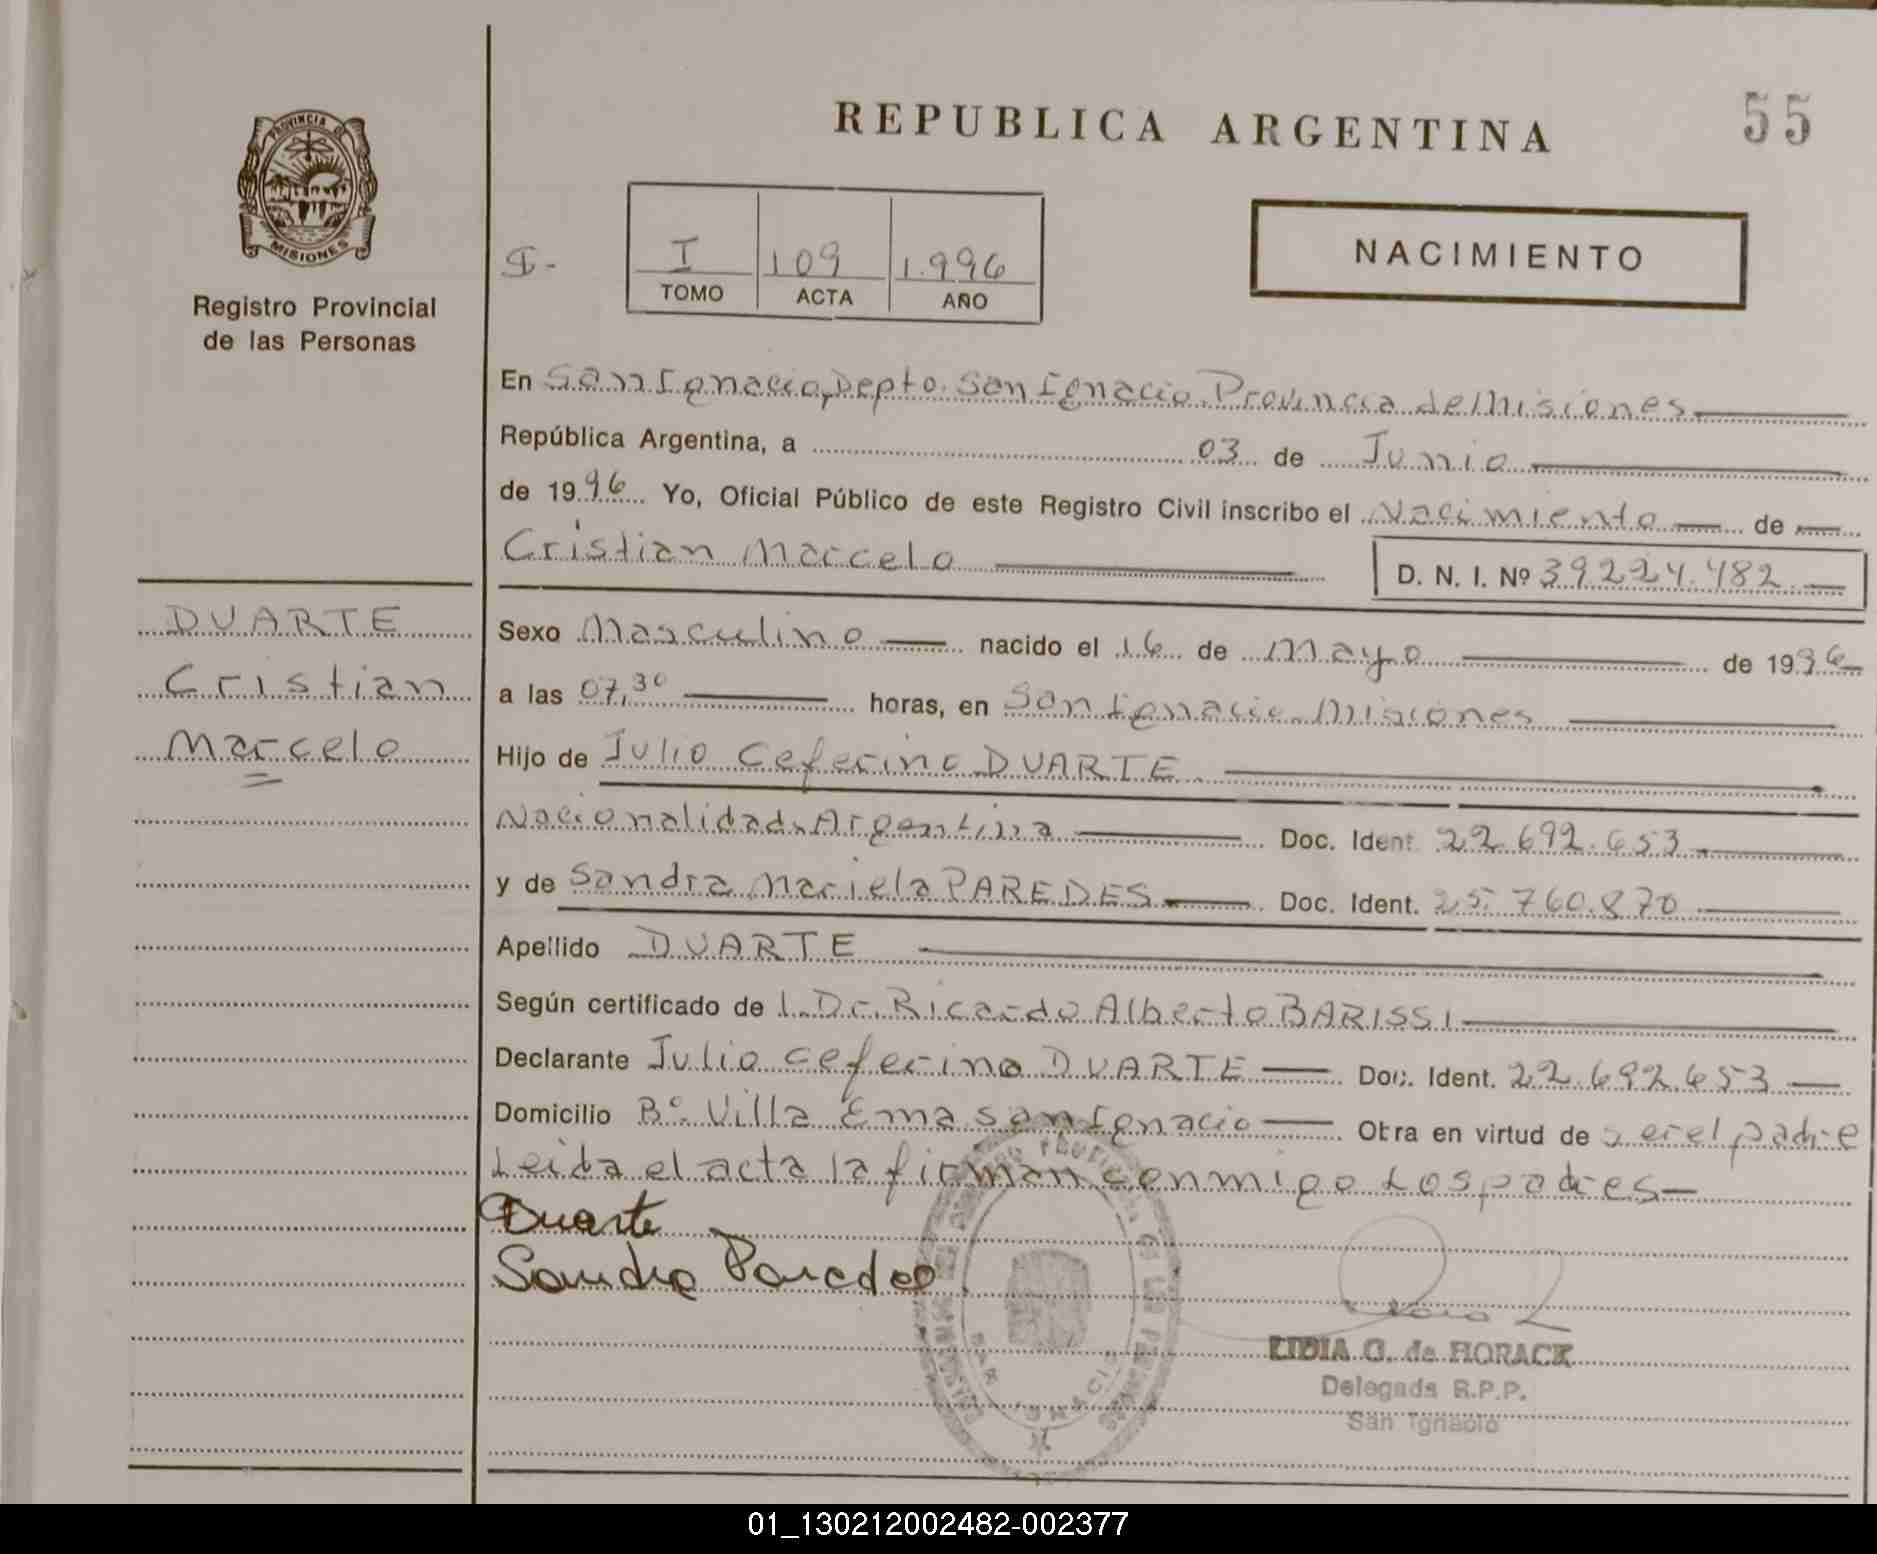 REPUBLICA ARGENTINA
55
PROVINCIA DE
MISIONES
Registro Provincial
de las Personas
I 109 1.996
TOMO ACTA AÑO
NACIMIENTO
En San Ignacio, Depto. San Ignacio Provincia de Misiones
República Argentina, a 03 de Junio
de 1996 Yo, Oficial Público de este Registro Civil inscribo el Nacimiento de
Cristian Marcelo D. N. I. Nº 39.224.482
DUARTE
Cristian
Marcelo
Sexo Masculino nacido el 16 de Mayo de 1996
a las 07,30 horas, en San Ignacio Misiones
Hijo de Julio Ceferino DUARTE
Nacionalidad Argentina Doc. Ident. 22.692.653
y de Sandra Mariela PAREDES Doc. Ident. 25.760.870
Apellido DUARTE
Según certificado de l Dr. Ricardo Alberto BARISSI
Declarante Julio Ceferino DUARTE Doc. Ident. 22.692.653
Domicilio Bº Villa Ema San Ignacio Obra en virtud de ser el padre
Leida el acta la firman conmigo Los padres
Duarte
Sandra Paredes
LIDIA G. de HORACK
Delegada R.P.P.
San Ignacio
SAN IGNACIO
01_130212002482-002377